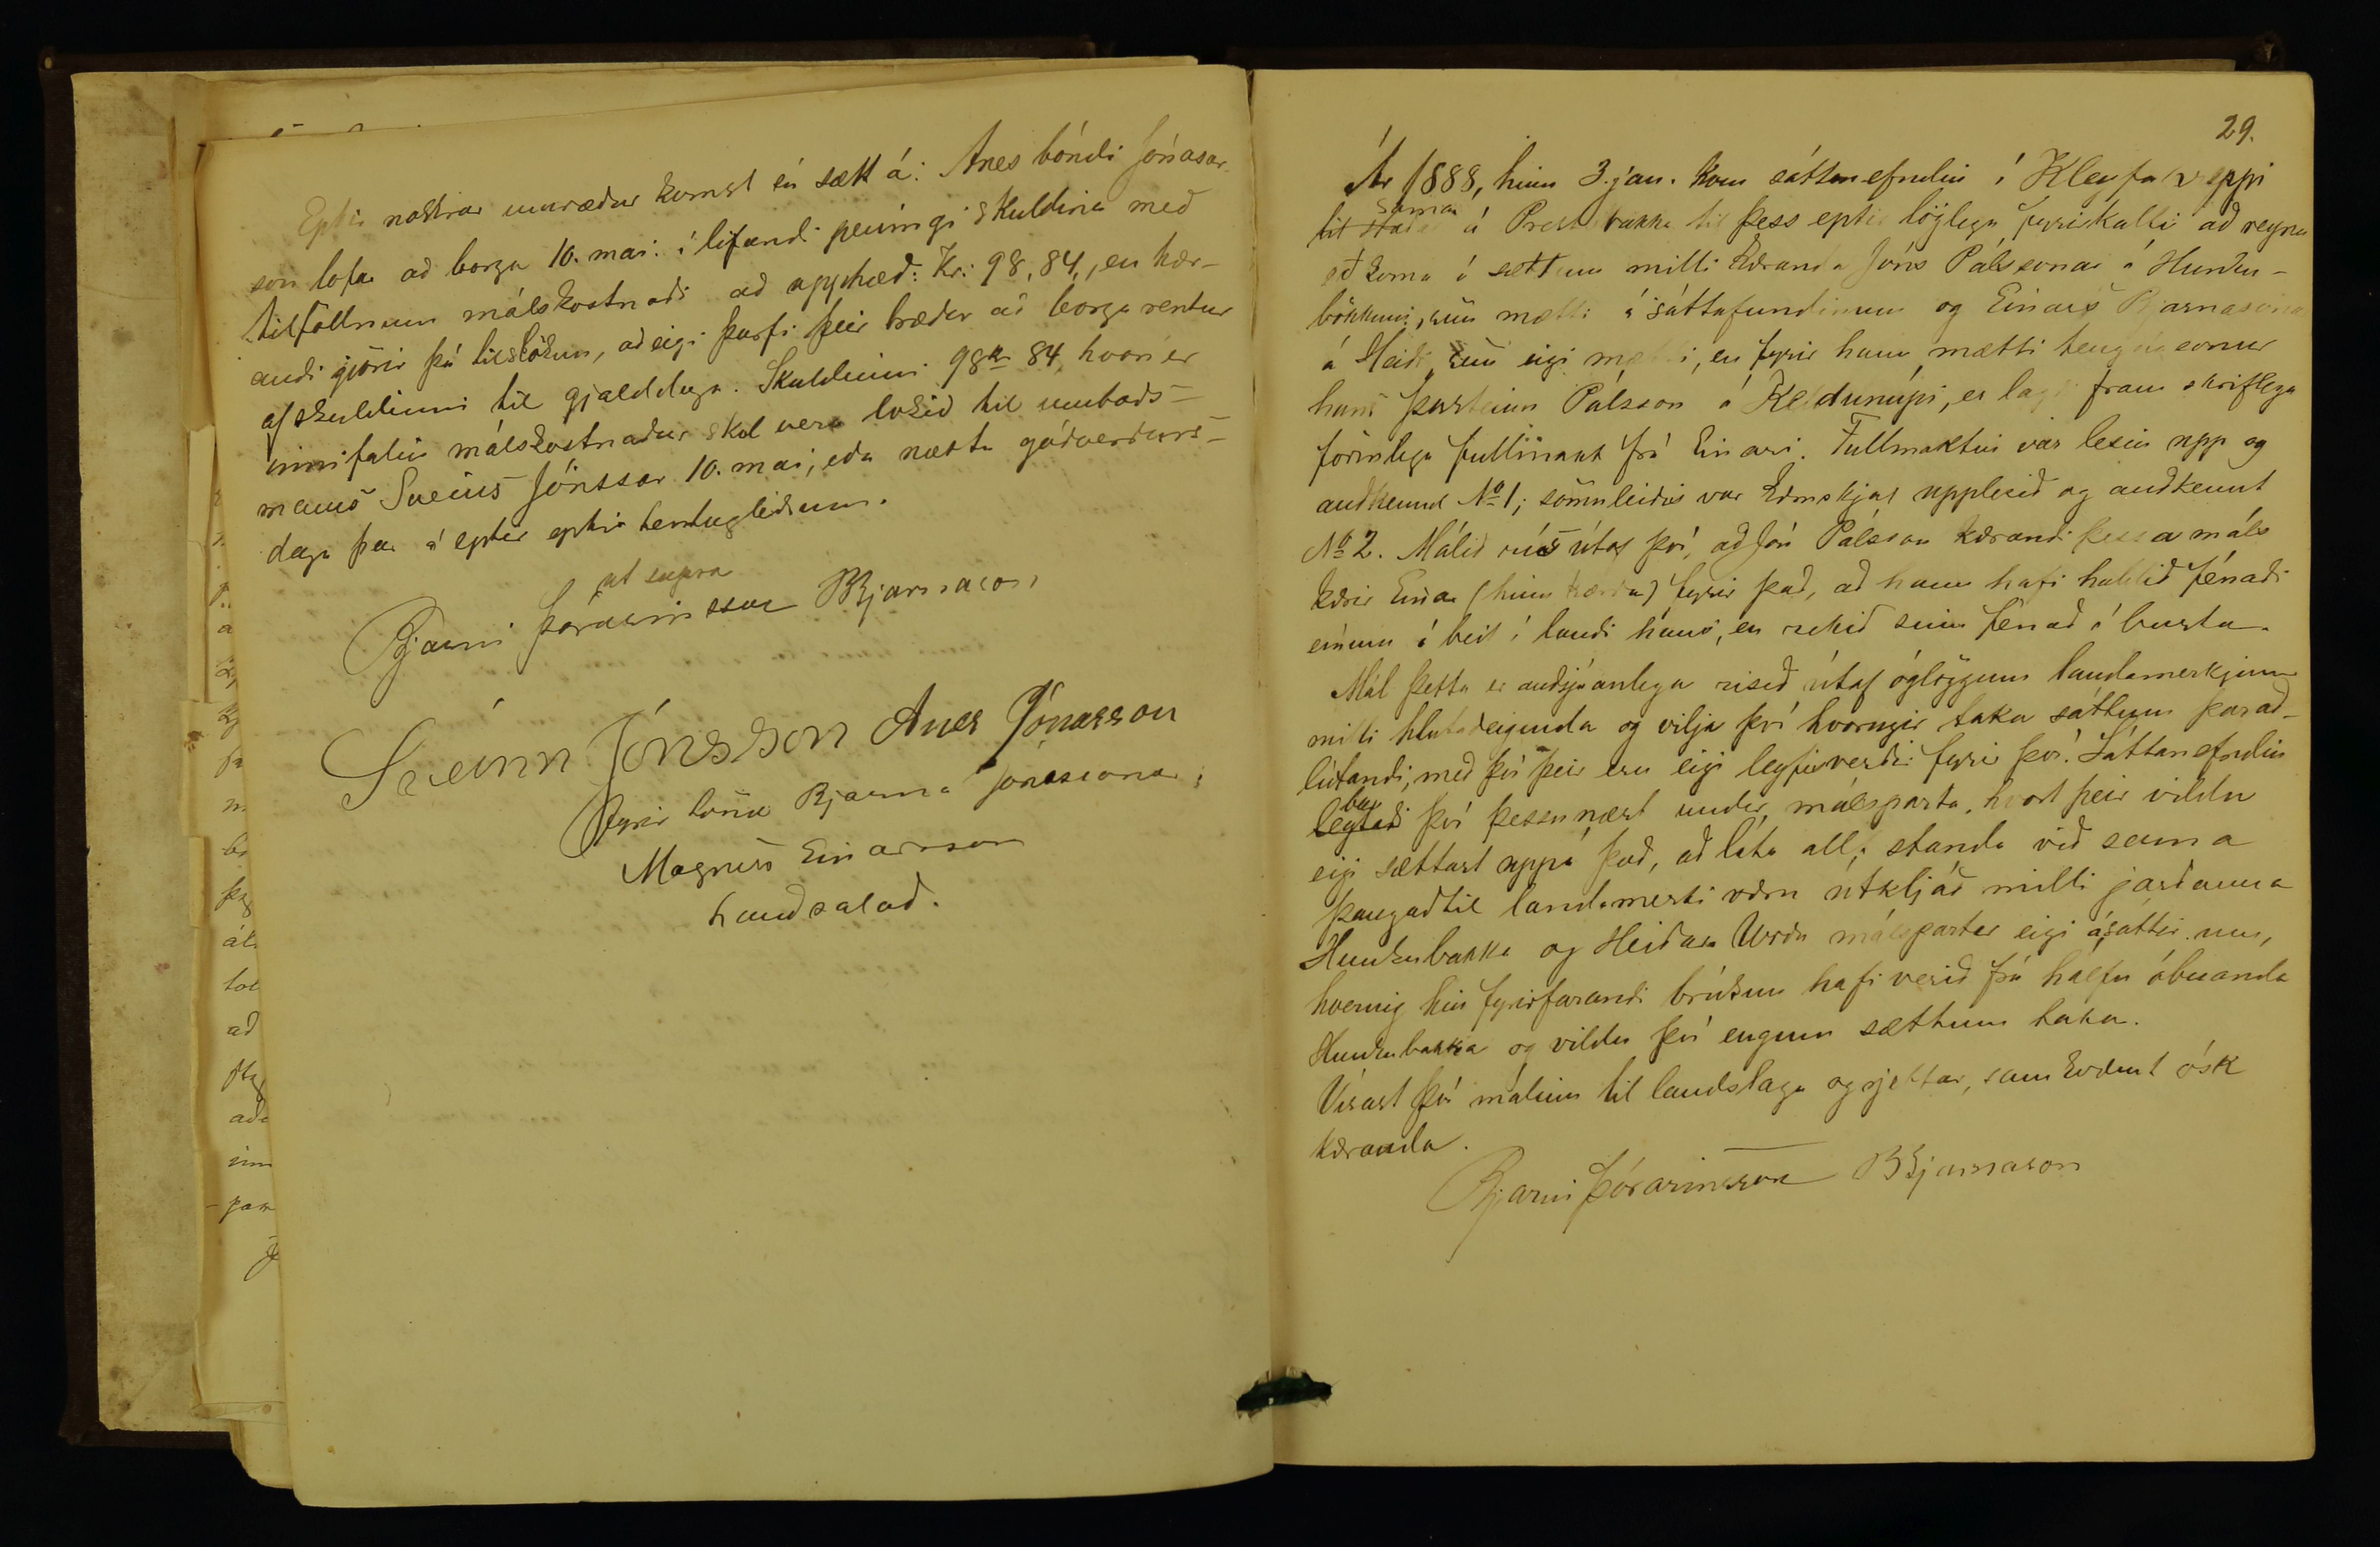 Eptir nokkrar umræður komst sú sætt á: Anes bóndi Jónasar-
son lofar að borga 10. mai: í lifandi peningi skuldina með
tilföllnum málskostnaði að upphæð: Kr: 98,84, en kær-
andi gjörir þá tilslökun, að eigi þurfi þeir bræður að borga rentur
af skuldinni til gjalddaga. Skuldinni 98 kr 84, hvar í er
innifalin málskostnaður skal vera lokið til umboðs-
manns Sveins Jónssonar 10. mai, eða næsta góðveðurs-
daga þar á eptir eptir hentugleikum.
ut supra
Bjarni Þórarinsson BBjarnason
Sveinn Jónsson Anes Jónasson
fyrir hönd Bjarna Jónassonar;
Magnús Einarsson
handsalað.
29.
Ár 1888, hinn 3. jan. kom sáttanefndin í Kleyfahreppi
saman
til staðar á Prestsbakka til þess eptir löglegu fyrirkalli að reyna
að koma á sættum milli kæranda Jóns Pálssonar á Hunku-
bökkum, sem mætti á sáttafundinum og Einars Bjarnasonar
á Heiði, sem eigi mætti, en fyrir hann mætti tengdasonur
hans Þorsteinn Pálsson á Keldunúpi, er lagði fram skriflega
formlega fullmakt frá Einari. Fullmaktin var lesin upp og
auðkennd No 1; sömuleiðis var kærusk­jal upplesið og auðkennt
No 2. Málið rís útaf því, að Jón Pálsson kærandi þessa máls
kærir Einar (hinn kærða) fyrir það, að hann hafi haldið fénaði
sínum á beit í landi hans, en rekið sinn fénað í burtu.
Mál þetta er auðsjáanlega risið útaf óglöggum landamerkjum
milli hlutaðeigenda og vilja því hvorugir taka sáttum þarað-
lútandi, með því þeir eru eigi leyfisverðir fyrir því. Sáttanefndin
bar
leytaði því þessu næst undir málsparta, hvort þeir vildu
eigi sættast uppá það, að láta allt standa við sama
þangaðtil landamerki væru útkljáð milli jarðanna
Hunkubakka og Heiðar. Urðu málspartar eigi ásáttir um,
hvernig hin fyrirfarandi brúkun hafi verið frá hálfu ábúanda
Hunkubakka og vildu því engum sættum taka.
Vísast því málinu til landslaga og rjettar, samkvæmt ósk
kæranda.
Bjarni Þórarinsson BBjarnason